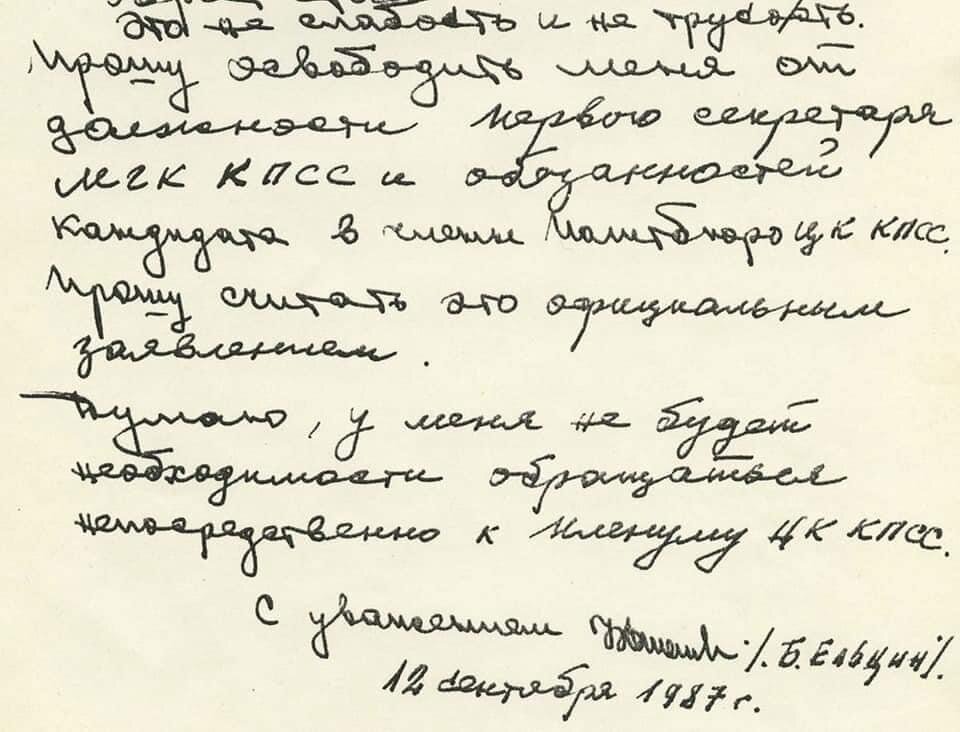 Это не слабость и не трусость.
Прошу освободить меня от
должности первого секретаря
МГК КПСС и обязанностей
кандидата в члены Политбюро ЦК КПСС.
Прошу считать это официальным
заявлением.
Думаю, у меня не будет
необходимости обращаться
непосредственно к Пленуму ЦК КПСС.
С уважением /. Б. Ельцин/.
12 сентября 1987 г.